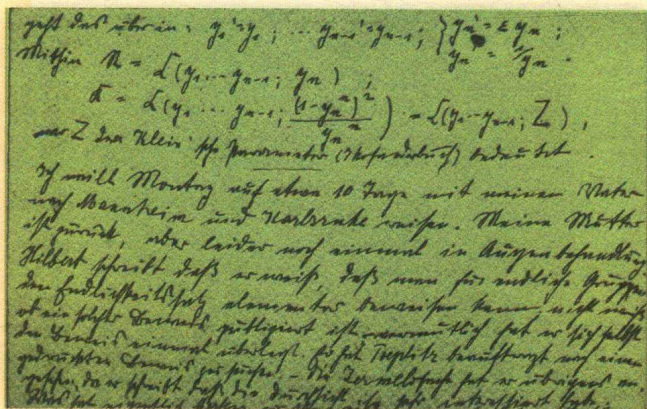 geht das über in: y₁' = y₁; ... y'ₙ₋₁ = yₙ₋₁; { yₙ' = ε yₙ; yₙ' = 1/yₙ.
Mithin R = L(y₁ ... yₙ₋₁; yₙ);
K = L(y₁ ... yₙ₋₁; (1-yₙⁿ)²/yₙⁿ) = L(y₁ ... yₙ₋₁; Z),
wo Z den Klein'sche Parameter (Ikosaederbuch) bedeutet.
Ich will Montag auf etwa 10 Tage mit meinem Vater
nach Mannheim und Karlsruhe reisen. Meine Mutter
ist zurück, aber leider noch einmal in Augenbehandlung
Hilbert schreibt daß er weiß, daß man für endliche Gruppen
den Endlichkeitssatz elementar beweisen kann, nicht
ob ein solcher Beweis publiziert ist, vermutlich hat er sich selbst
den Beweis einmal überlegt. Er hat Toeplitz beauftragt nach einem
gedruckten Beweis zu suchen. – Die hat er übrigens
gesehen, da er schreibt daß die ihn sehr interessiert